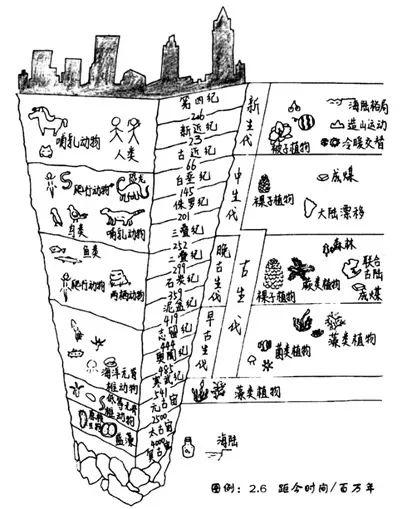 哺乳动物
人类
爬行动物
恐龙
鸟类
哺乳动物
鱼类
爬行动物
两栖动物
海洋无脊
椎动物
低等无脊
椎动物
蓝藻
第四纪
2.6
新近纪
23
古近纪
66
白垩纪
145
侏罗纪
201
三叠纪
252
二叠纪
299
石炭纪
359
泥盆纪
419
志留纪
444
奥陶纪
485
寒武纪
541
元古宙
2500
太古宙
4000
冥古宙
新生代
中生代
晚古生代
早古生代
古生代
被子植物
海陆格局
造山运动
冷暖交替
裸子植物
成煤
大陆漂移
裸子植物
蕨类植物
森林
联合
古陆
成煤
菌类植物
藻类植物
藻类植物
海陆
图例：2.6 距今时间/百万年